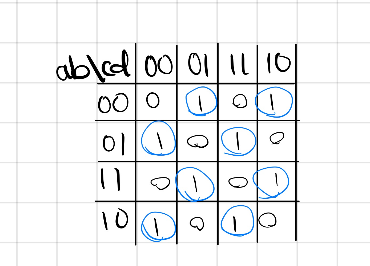 ab\cd 00 01 11 10
00 0 1 0 1
01 1 0 1 0
11 0 1 0 1
10 1 0 1 0